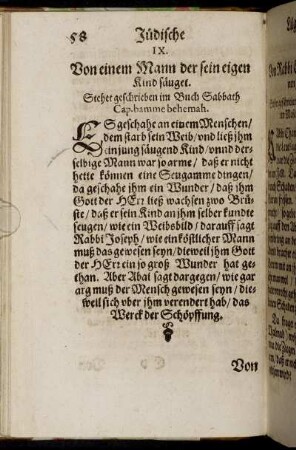 58 Jüdische
IX.
Von einem Mann der sein eigen
Kind säuget.
Stehet geschrieben im Buch Sabbath
Cap. bamme behemah.
ES geschahe an einem Menschen/
dem starb sein Weib/ vnd ließ jhm
ein jung säugend Kind/ vnnd der-
selbige Mann war so arme/ daß er nicht
hette können eine Seugamme dingen/
da geschahe jhm ein Wunder/ daß jhm
Gott der HErr ließ wachsen zwo Brü-
ste/ daß er sein Kind an jhm selber kundte
seugen/ wie ein Weibsbild/ darauff sagt
Rabbi Joseph/ wie ein köstlicher Mann
muß das gewesen seyn/ dieweil jhm Gott
der HErr ein so groß Wunder hat ge-
than. Aber Abai sagt dargegen/ wie gar
arg muß der Mensch gewesen seyn/ die-
weil sich vber jhm verendert hab/ das
Werck der Schöpffung.
Von